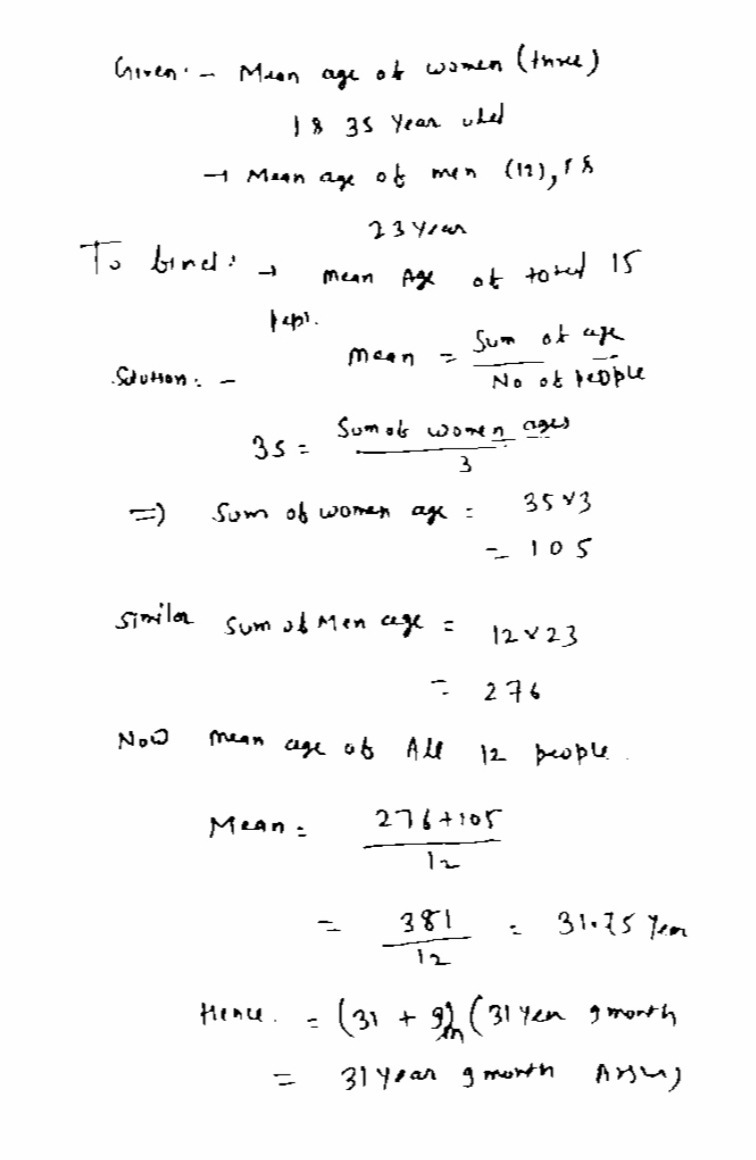 Given: - Mean age of women (three)
is 35 Year
→ Mean age of men (12), is
23 Year
To find: → Mean Age of total 15
Mean = Sum of age / No of people
Solution: -
35 = Sum of women ages / 3
=) Sum of women age = 35 × 3
= 105
Similar Sum of Men age = 12 × 23
= 276
Now Mean age of All 12 people.
Mean = 276+105 / 12
= 381 / 12 = 31.75 Year
Hence. = (31 + 9) (31 Year 9 month
= 31 year 9 month